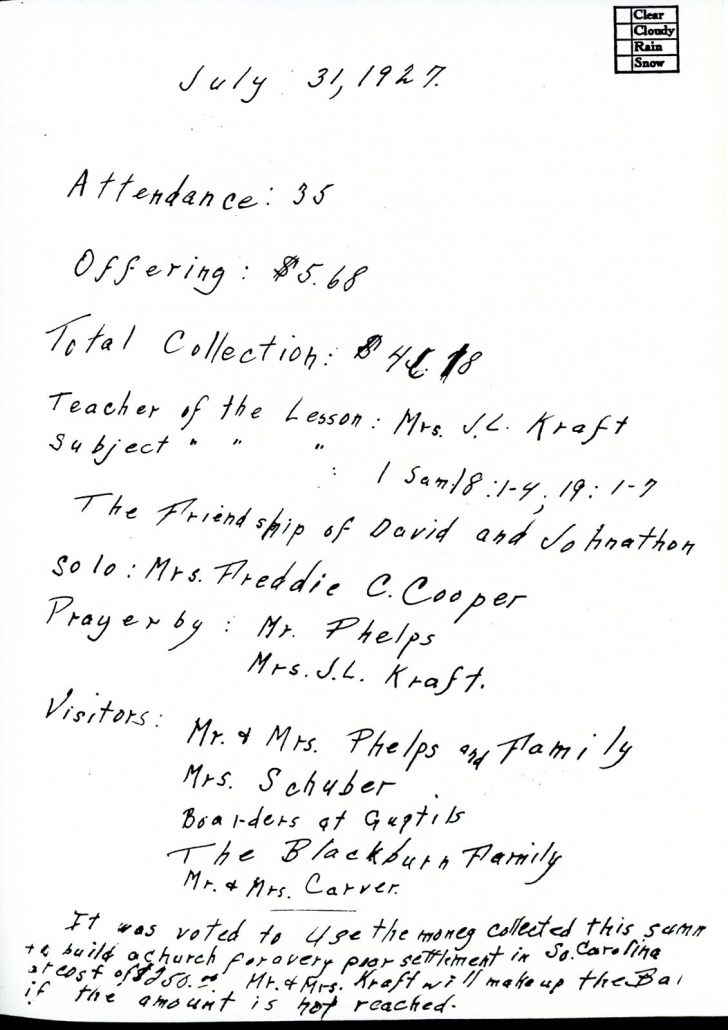 Clear
Cloudy
Rain
Snow
July 31, 1927.
Attendance: 35
Offering: $5.68
Total Collection: $4
Teacher of the Lesson: Mrs. J.L. Kraft
Subject " " " : 1 Sam 18:1-4; 19:1-7
The Friendship of David and Johnathon
Solo: Mrs. Freddie C. Cooper
Prayer by: Mr. Phelps
Mrs. J.L. Kraft.
Visitors:
Mr. & Mrs. Phelps and Family
Mrs. Schuber
Boarders at Guptils
The Blackburn Family
Mr. & Mrs. Carver.
It was voted to use the money collected this summ
to build a church for a very poor settlement in So. Carolina
at cost of $250.00 Mr. & Mrs. Kraft will make up the Bal
if the amount is not reached.